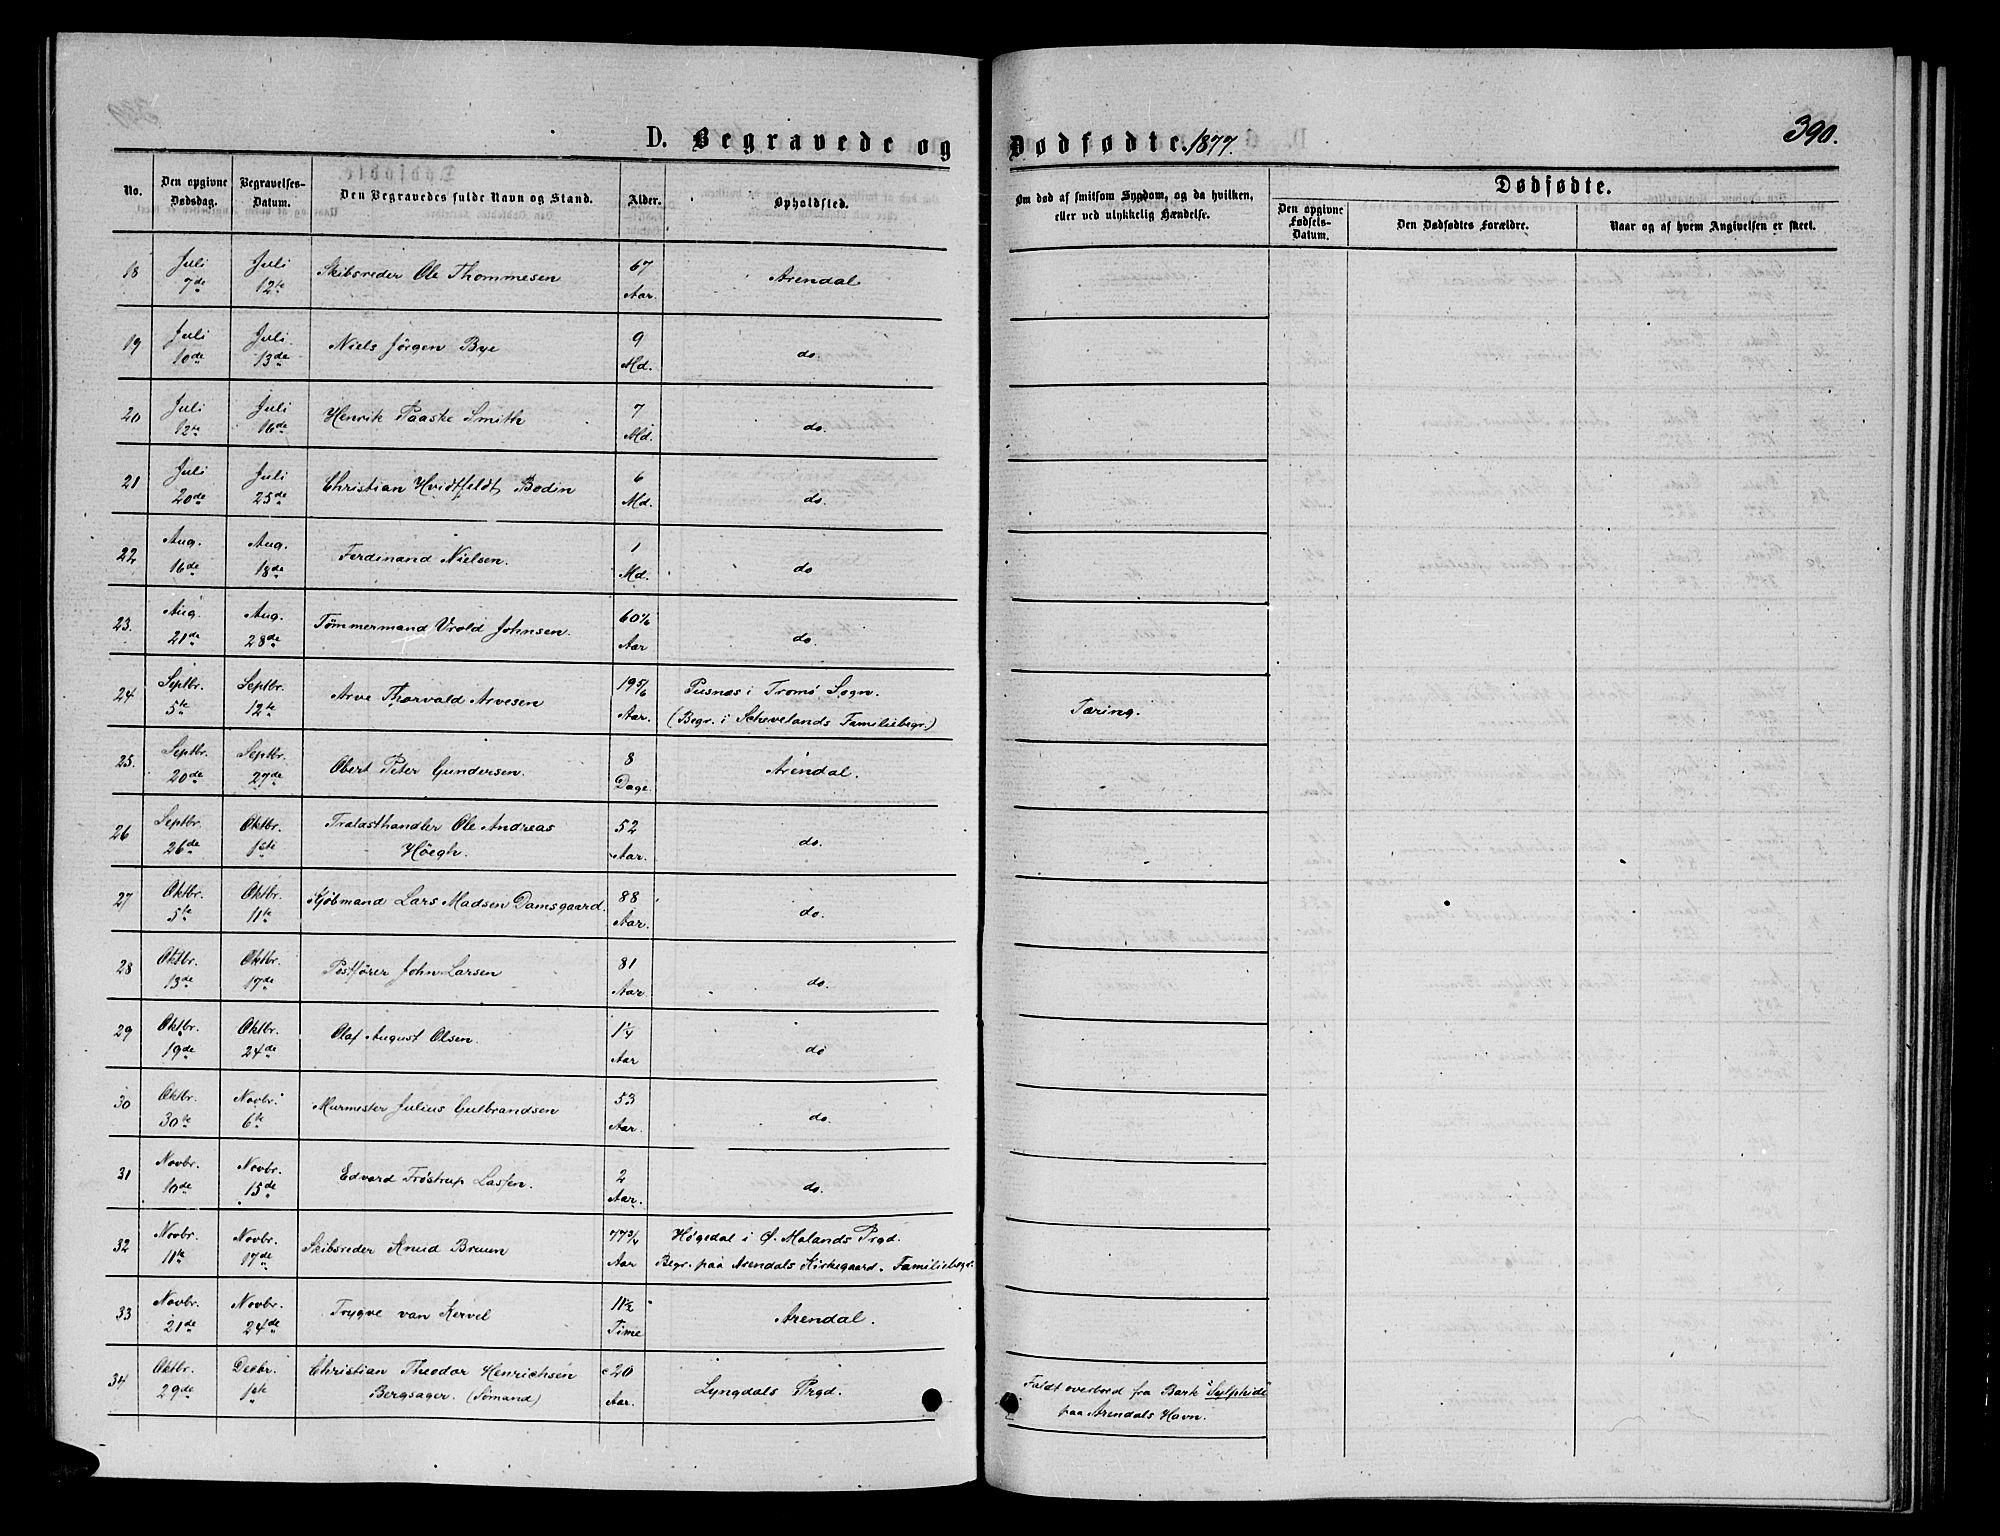 390.
D. Begravede og Dødfødte. 1877.
No.
Den opgivne Dødsdag.
Begravelses-Datum.
Den Begravedes fulde Navn og Stand.
Alder.
Opholdsted.
Om død af smitsom Sygdom, og da hvilken, eller ved ulykkelig Hændelse.
Dødfødte.
Den opgivne Fødsels-Datum.
Den Dødfødtes Forældre.
Naar og af hvem Angivelsen er skeet.
18 Juli 7de Juli 12te Skibsreder Ole Thommesen 67 Aar. Arendal
19 Juli 10de Juli 13de Niels Jörgen Bye 9 Md. do.
20 Juli 12te Juli 16de Henrik Paaske Smith 7 Md. do.
21 Juli 20de Juli 25de Christian Hvidtfeldt Bodin 6 Md. do.
22 Aug. 16de Aug. 18de Ferdinand Nielsen. 1 Md. do
23. Aug. 21de Aug. 28de Tømmermand Vrold Johnsen. 60 Aar do.
24 Septbr. 5te Septbr. 12te Arve Thorvald Arvesen 19 5/6 Aar. Pusnæs i Tromø Sogn.
(Begr. i Schevelands Familiebegr.) Tæring.
25. Septbr. 20de Septbr. 27de Obert Peter Gundersen. 8 Dage. Arendal.
26 Septbr. 26de Oktbr. 1ste Trælasthandler Ole Andreas
Höegh. 52 Aar. do.
27 Oktbr. 5te Oktbr. 11te Kjöbmand Lars Madsen Damsgaard. 88 Aar. do.
28 Oktbr. 13de Oktbr. 17de Postfører John Larsen 81 Aar. do.
29 Oktbr. 19de Oktbr. 24de Olaf August Olsen. 1 1/4 Aar do
30 Oktbr. 30te Novbr. 6te Murmester Julius Gulbrandsen 53 Aar. do.
31 Novbr. 10de Novbr. 15de Edvard Tröstrup Lassen. 2 Aar. do.
32 Novbr. 11te Novbr. 17de Skibsreder Knud Bruun 77 3/4 Aar Högedal i Ø. Molands Prgd.
Begr. paa Arendals Kirkegaard. Familiebegr.
33 Novbr. 21de Novbr. 24de Trygve van Kervel 11 1/2 Time Arendal.
34 Oktbr. 29de Decbr. 1ste Christian Theodor Henrichsen
Bergsager. (Sömand) c 20 Aar. Lyngdals Prgd. Faldt overbord fra Bark "Sylphide"
paa Arendals Havn.